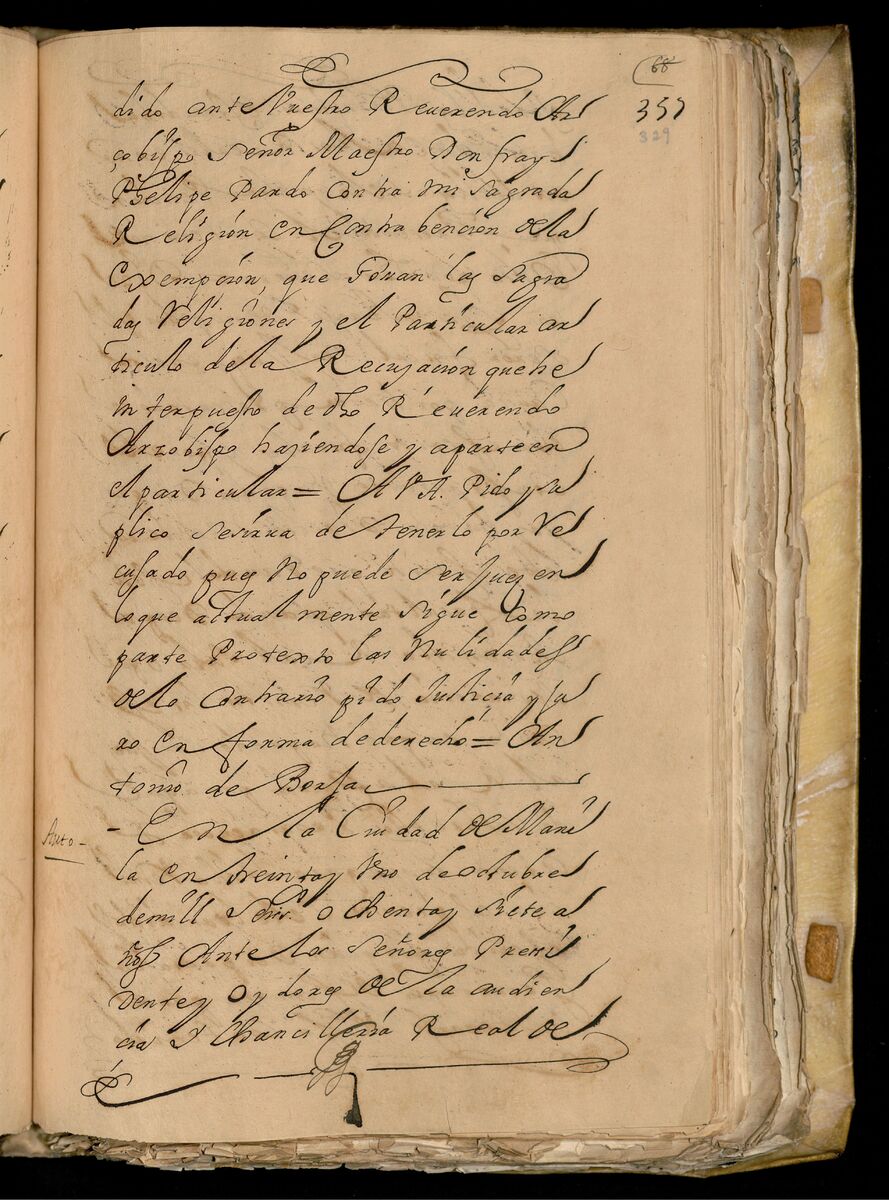 68
357
329
dido ante Nuestro Reuerendo Ar
çobispo Señor Maestro Don fray
Phelipe Pardo Contra mi Sagrada
Religion en Contra bencion de la
Exempcion, que gosan las Sagra
das Religiones y el Particular ar
ticulo de la Recusacion que he
interpuesto de dho Reuerendo
Arzobispo haziendose y aparte en
el particular = A V A. Pido y su
plico se sirua de tenerlo por Re
cusado pues No puede ser Juez en
loque actual mente sigue Como
parte Protexto las Nulidades
de lo Contrario pido Justicia y Ju
ro en forma de derecho = An
tonio de Borja
Auto - En la Ciudad de Mani
la en treinta y Vno de octubre
de mill Seisos. ochenta y Siete a
ños Ante los Señores Presi
dente y oydores de la audien
cia Y Chancilleria Real de